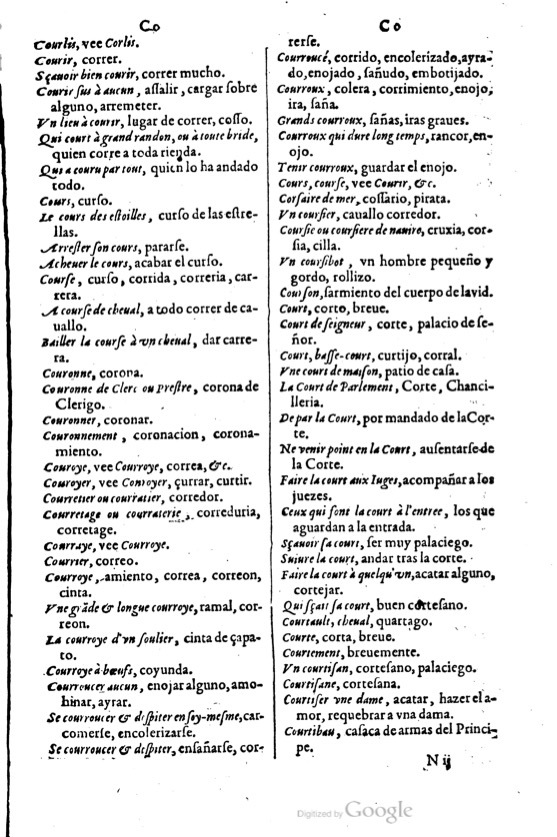 Co
Courlis, vee Corlis.
Courir, correr.
Sçauoir bien courir, correr mucho.
Courir ſus à aucun, aſſalir, cargar ſobre
alguno, arremeter.
Vn lieu à courir, lugar de correr, coſſo.
Qui court à grand randon, ou à toute bride,
quien corre a toda rienda.
Qui a couru par tout, quien lo ha andado
todo.
Cours, curſo.
Le cours des eſtoilles, curſo de las eſtre-
llas.
Arreſter ſon cours, pararſe.
Acheuer le cours, acabar el curſo.
Courſe, curſo, corrida, correria, car-
rera.
A courſe de cheual, a todo correr de ca-
uallo.
Bailler la courſe à vn cheual, dar carre-
ra.
Couronne, corona.
Couronne de Clerc ou Preſtre, corona de
Clerigo.
Couronner, coronar.
Couronnement, coronacion, corona-
miento.
Couroye, vee Courroye, correa, &c.
Couroyer, vee Conroyer, çurrar, curtir.
Courretier ou courratier, corredor.
Courretage ou courraterie, correduria,
corretage.
Courraye, vee Courroye.
Courrier, correo.
Courroye, amiento, correa, correon,
cinta.
Vne grãde & longue courroye, ramal, cor-
reon.
La courroye d'vn ſoulier, cinta de çapa-
to.
Courroye à bœufs, coyunda.
Courroucer aucun, enojar alguno, amo-
hinar, ayrar.
Se courroucer & deſpiter en ſoy-meſme, car-
comerſe, encolerizarſe.
Se courroucer & deſpiter, enſañarſe, cor-
Co
rerſe.
Courroucé, corrido, encolerizado, ayra-
do, enojado, ſañudo, embotijado.
Courroux, colera, corrimiento, enojo,
ira, ſaña.
Grands courroux, ſañas, iras graues.
Courroux qui dure long temps, rancor, en-
ojo.
Tenir courroux, guardar el enojo.
Cours, courſe, vee Courir, &c.
Corſaire de mer, coſſario, pirata.
Vn courſier, cauallo corredor.
Courſie ou courſiere de nauire, cruxia, cor-
ſia, cilla.
Vn courſibot, vn hombre pequeño y
gordo, rollizo.
Courſon, ſarmiento del cuerpo de la vid.
Court, corto, breue.
Court de ſeigneur, corte, palacio de ſe-
ñor.
Court, baſſe-court, curtijo, corral.
Vne court de maiſon, patio de caſa.
La Court de Parlement, Corte, Chanci-
lleria.
De par la Court, por mandado de la Cor-
te.
Ne venir point en la Court, auſentarſe de
la Corte.
Faire la court aux Iuges, acompañar a los
juezes.
Ceux qui font la court à l'entree, los que
aguardan a la entrada.
Sçauoir ſa court, ſer muy palaciego.
Suiure la court, andar tras la corte.
Faire la court à quelqu'vn, acatar alguno,
cortejar.
Qui ſçait ſa court, buen corteſano.
Courtault, cheual, quartago.
Courte, corta, breue.
Courtement, breuemente.
Vn courtiſan, corteſano, palaciego.
Courtiſane, corteſana.
Courtiſer vne dame, acatar, hazer el a-
mor, requebrar a vna dama.
Courtibau, caſaca de armas del Princi-
pe.
N ij
Digitized by Google